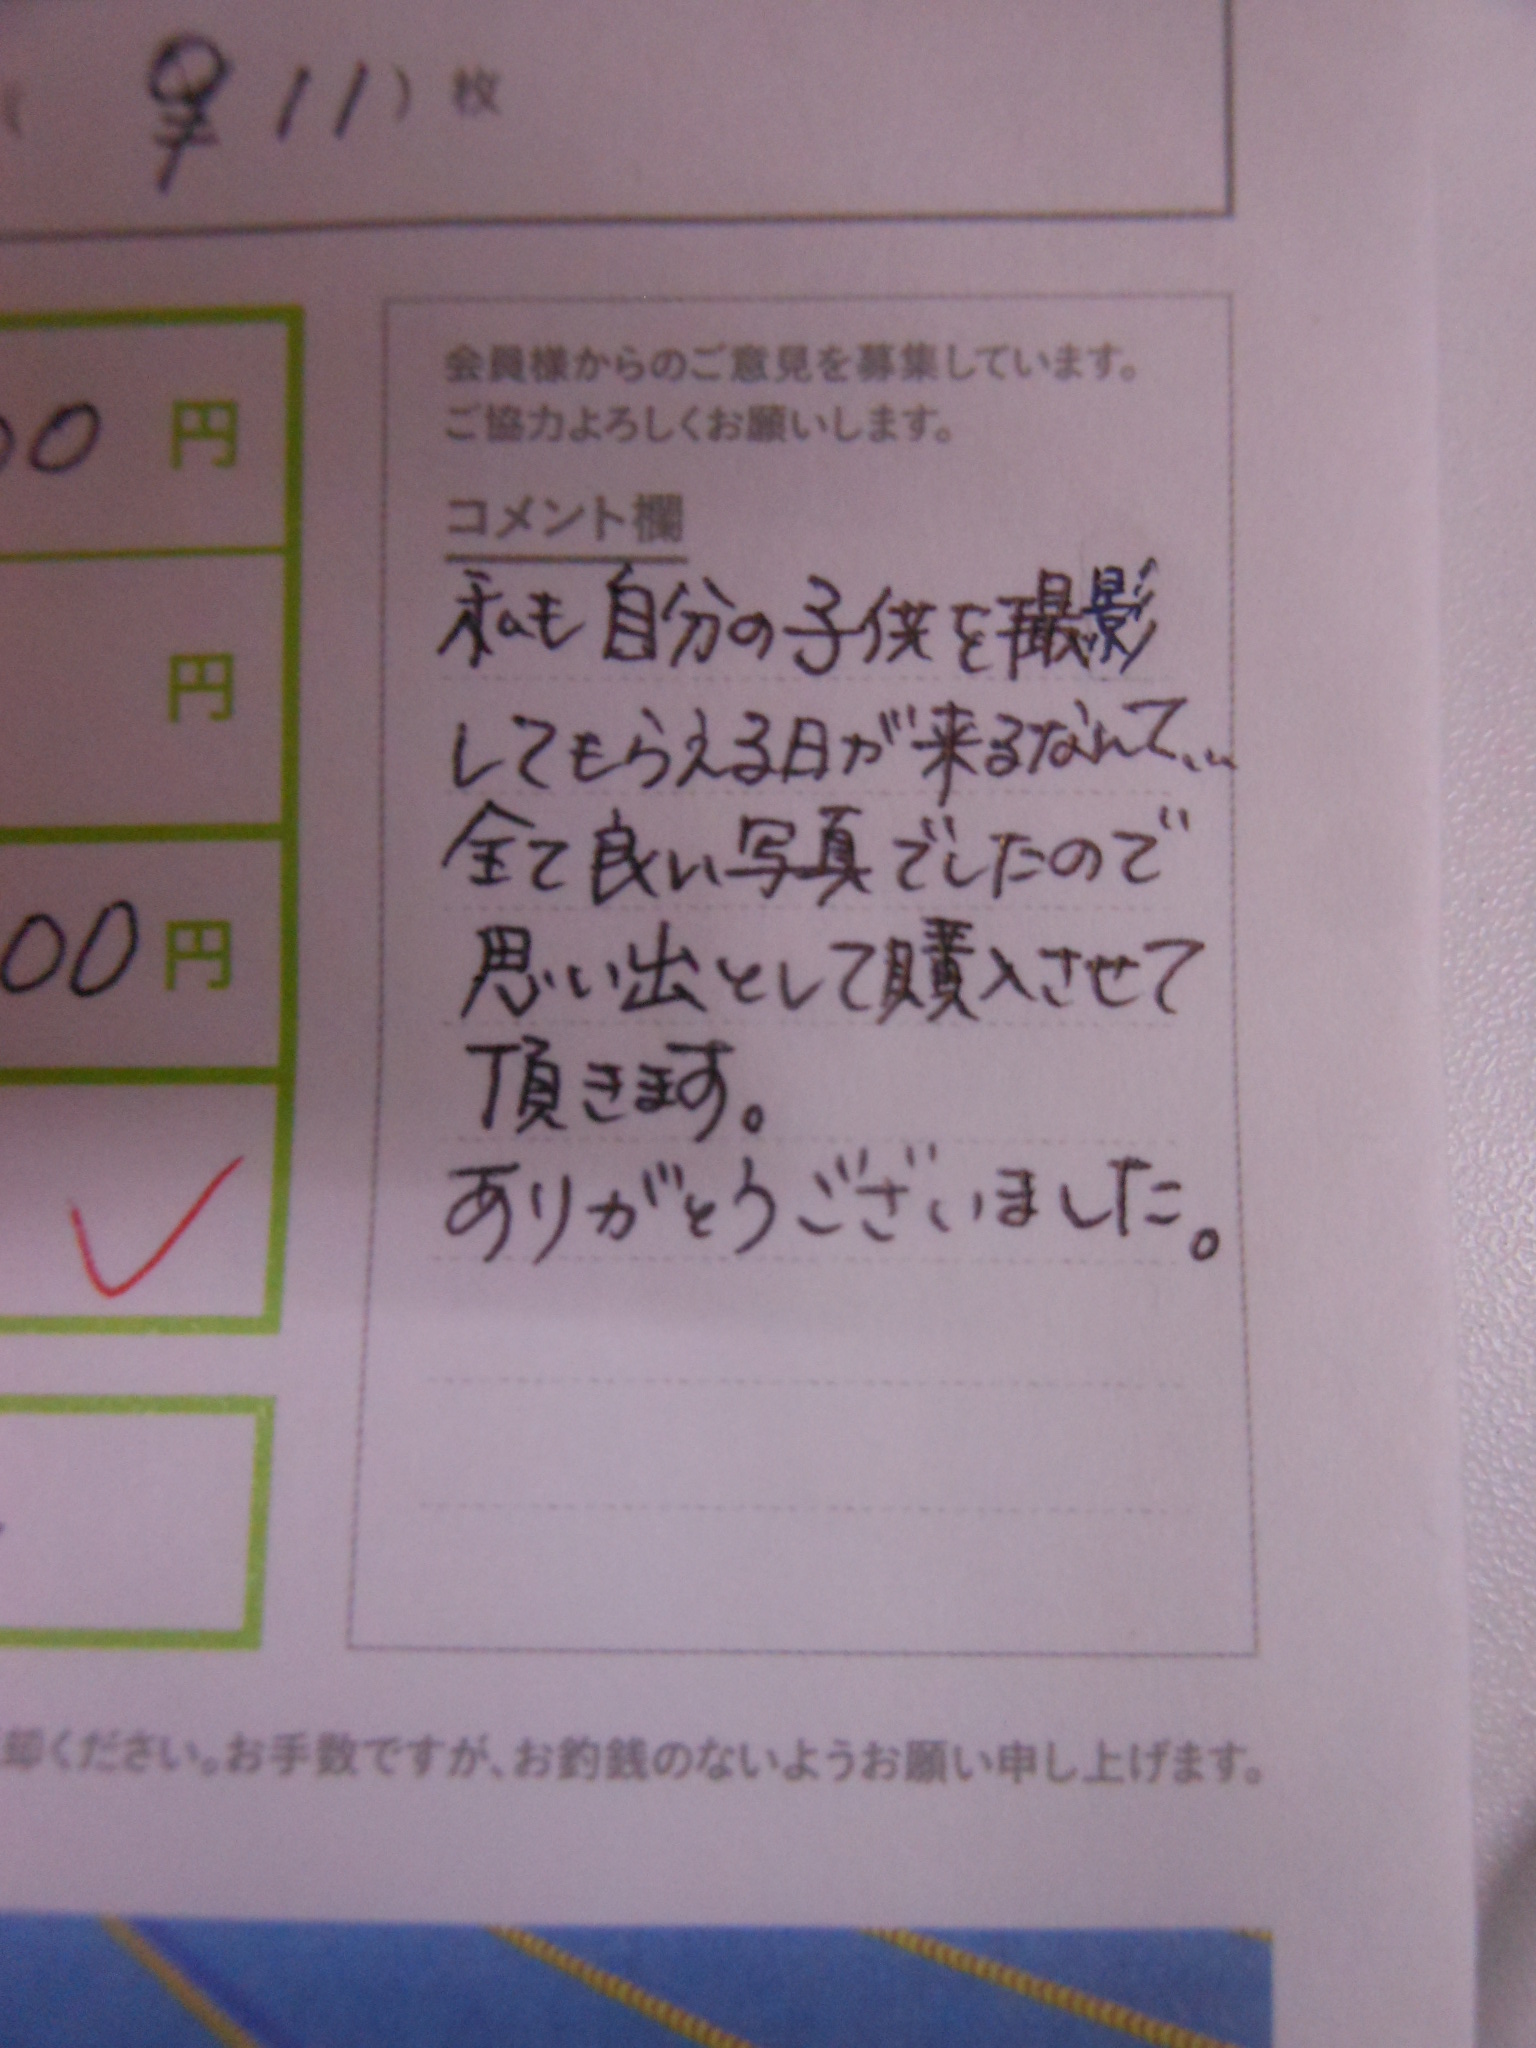 11）枚
会員様からのご意見を募集しています。
ご協力よろしくお願いします。
コメント欄
私も自分の子供を撮影
してもらえる日が来るなんて…
全て良い写真でしたので
思い出として購入させて
頂きます。
ありがとうございました。
00 円
円
00 円
却ください。お手数ですが、お釣銭のないようお願い申し上げます。